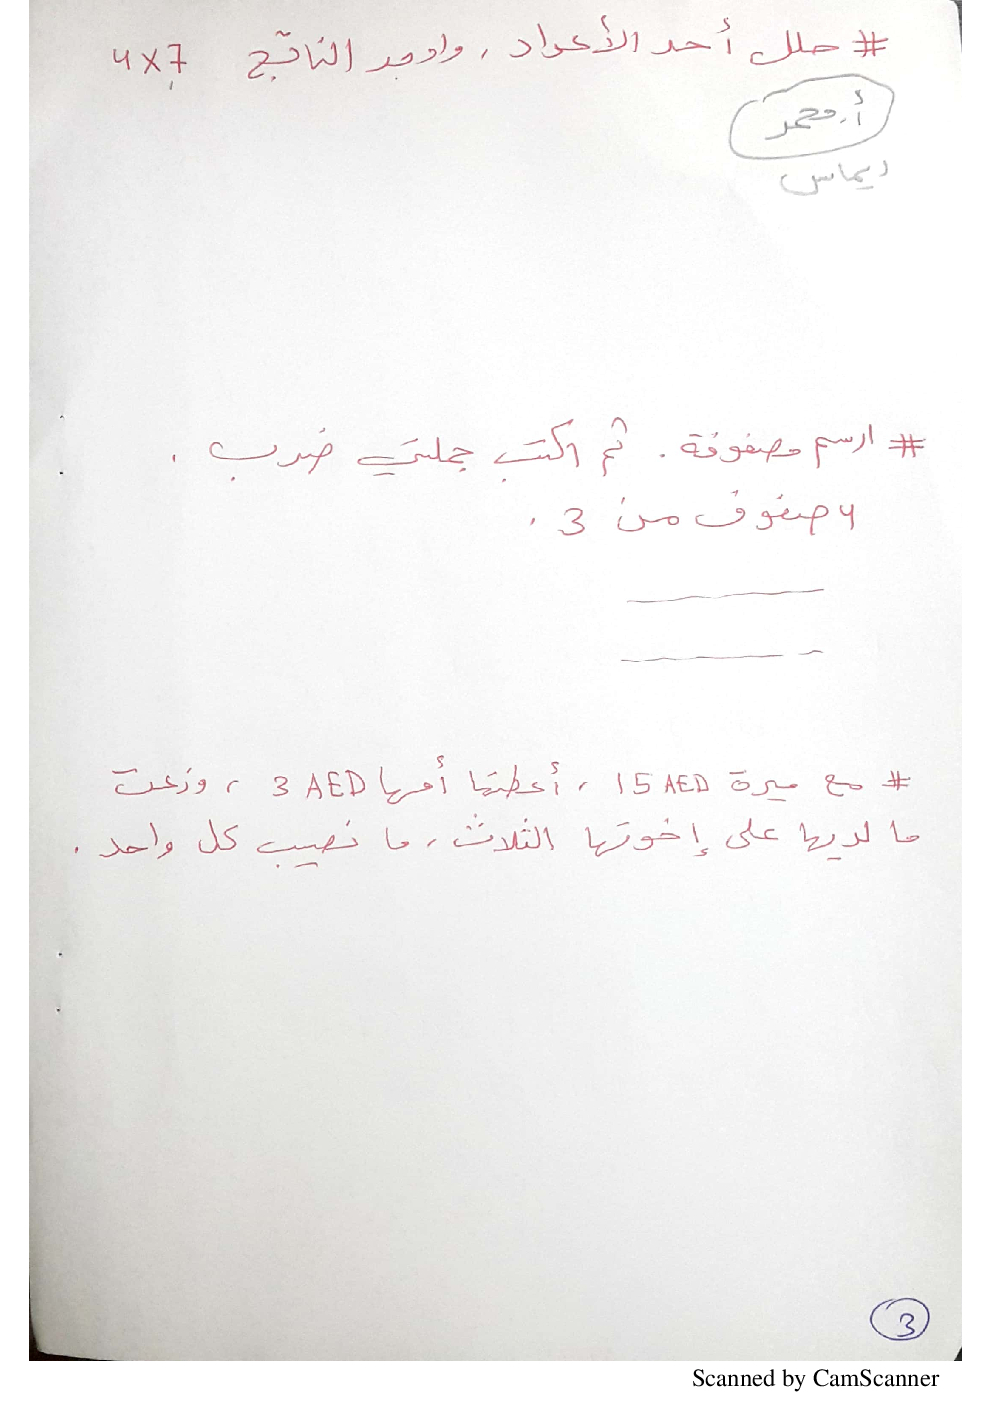 # حلل أحد الأعداد , واوجد الناتج 4x7
أ. محمد
ديماس
# ارسم مصفوفة . ثم اكتب جملتي ضرب .
4 صفوف من 3 .
# مع ميرة 15 AED , أعطتها أمها 3 AED , وزعت
ما لديها على إخوتها الثلاث , ما نصيب كل واحد .
3
Scanned by CamScanner